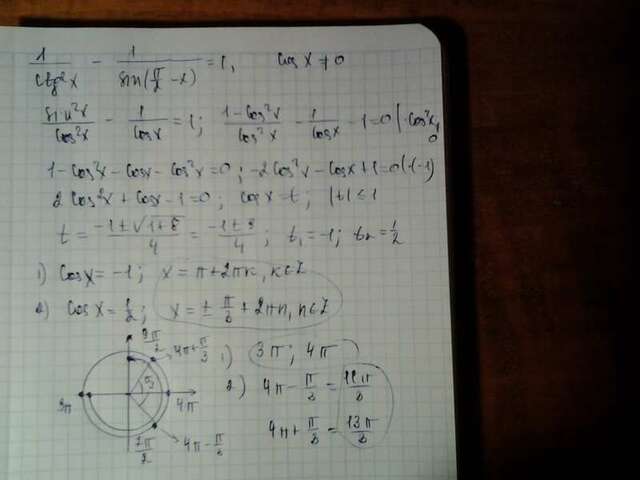 1/ctg²x - 1/sin(π/2 - x) = 1, cos x ≠ 0
sin²x/cos²x - 1/cos x = 1; (1-cos²x)/cos²x - 1/cos x - 1 = 0 | ·cos²x ≠ 0
1 - cos²x - cos x - cos²x = 0; -2cos²x - cos x + 1 = 0 | ·(-1)
2cos²x + cos x - 1 = 0; cos x = t; |t| ≤ 1
t = (-1 ± √(1+8))/4 = (-1 ± 3)/4; t₁ = -1; t₂ = 1/2
1) cos x = -1; x = π + 2πk, k∈Z
2) cos x = 1/2; x = ± π/3 + 2πn, n∈Z
4π + π/3
1) 3π; 4π
3π
4π
2) 4π - π/3 = 11π/3
7π/2
4π - π/3
4π + π/3 = 13π/3